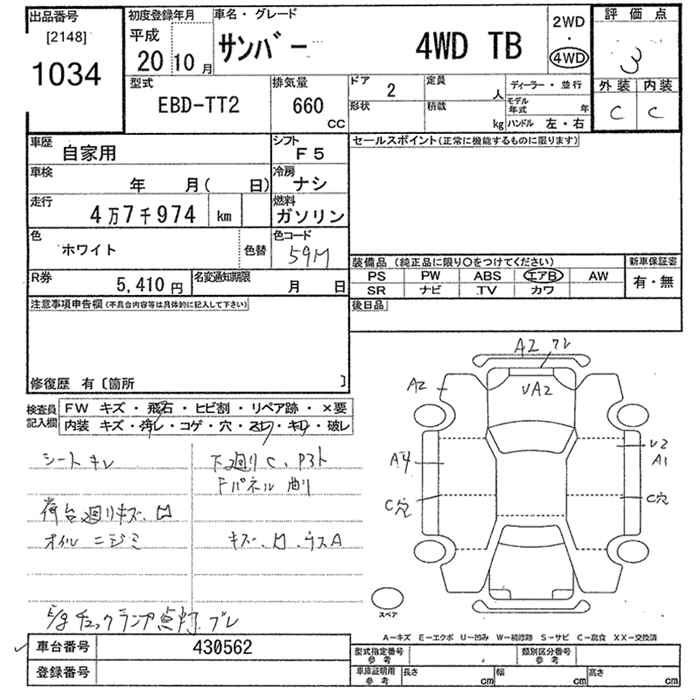 出品番号 初度登録年月 車名・グレード 2WD 評価点
[2148] 平成 ・
1034 20 10月 サンバー 4WD TB 4WD 3
型式 排気量 ドア 2 定員 人 ディーラー・並行 外装 内装
EBD-TT2 660 CC 形状 積載 kg モデル年式 年 C C
ハンドル 左・右
車歴 自家用 シフト F5 セールスポイント(正常に機能するものに限ります)
車検 年 月( 日) 冷房 ナシ
走行 4万7千974 km 燃料 ガソリン
色 ホワイト 色替 色コード 59M
装備品(純正品に限り○をつけてください) 新車保証書
R券 5,410円 名変通知期限 月 日 PS PW ABS エアB AW 有・無
SR ナビ TV カワ
注意事項申告欄(不具合内容等は具体的に記入して下さい) 後日品
修復歴 有〔箇所 〕
A2 ワレ
A2 UA2
検査員記入欄 FW キズ・飛石・ヒビ割・リペア跡・×要
内装 キズ・汚レ・コゲ・穴・スレ・キレ・破レ
シートキレ 下廻りC、Pヨト
Fパネル曲り
A4 U2 A1
C穴 C穴
荷台廻りキズ、凹
オイルニジミ キズ、凹、ウスA
E/gチェックランプ点灯 ブレ
スペア
A-キズ E-エクボ U-凹み W-補修跡 S-サビ C-腐食 XX-交換済
車台番号 430562
登録番号
型式指定番号 参考 類別区分番号 参考
車庫証明用 参考 長さ cm 幅 cm 高さ cm